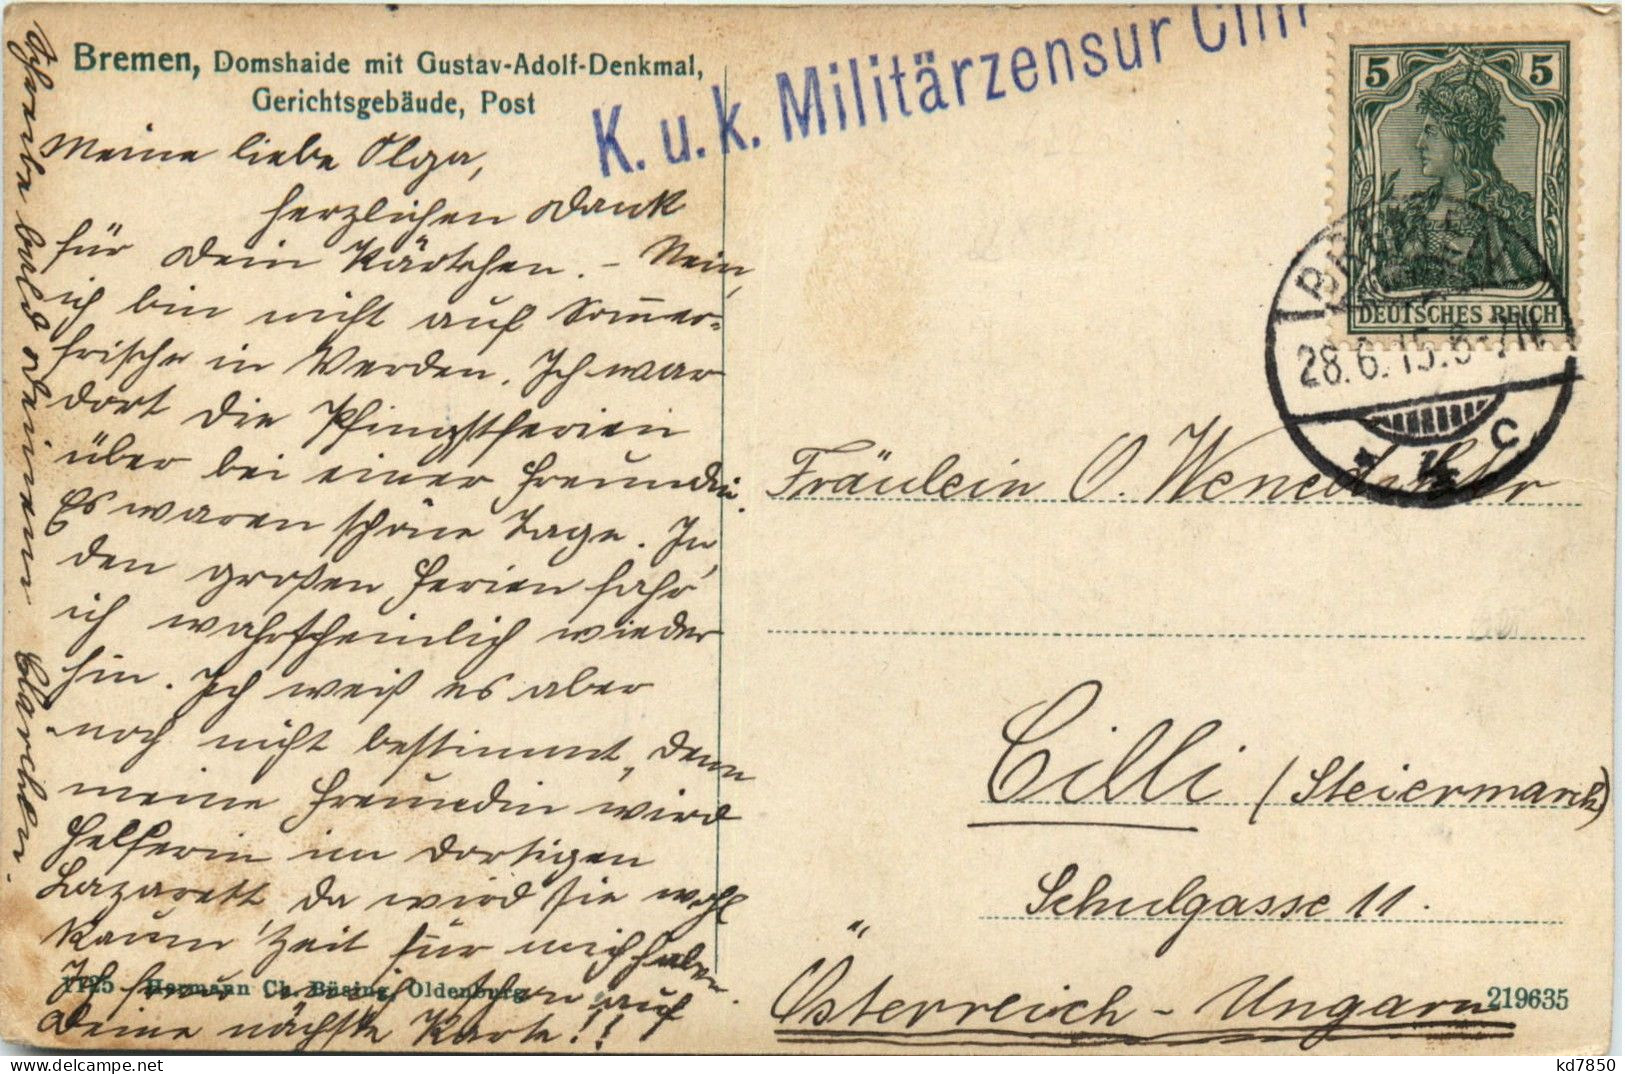 Bremen, Domshaide mit Gustav-Adolf-Denkmal,
Gerichtsgebäude, Post
K. u. k. Militärzensur Cilli
5 5
DEUTSCHES REICH
BREMEN
28.6.15.6-7N.
* 1 c
Meine liebe Olga,
herzlichen Dank
für Dein Kärtchen. – Nein,
ich bin nicht auf Sommer-
frische in Verden. Ich war
dort die Pfingstferien
über bei einer Freundin.
Es waren schöne Tage. In
den großen Ferien fahr'
ich wahrscheinlich wieder
hin. Ich weiß es aber
noch nicht bestimmt, denn
meine Freundin wird
Helferin im dortigen
Lazarett, da wird sie wohl
kaum Zeit für mich haben.
Ich freu mich schon auf
Deine nächste Karte!!
Schreibe bald Deinem Clärchen.
Fräulein O.
Cilli (Steiermark)
Schulgasse 11.
Österreich-Ungarn
1125 Hermann Ch. Büsing, Oldenburg
219635
kd7850